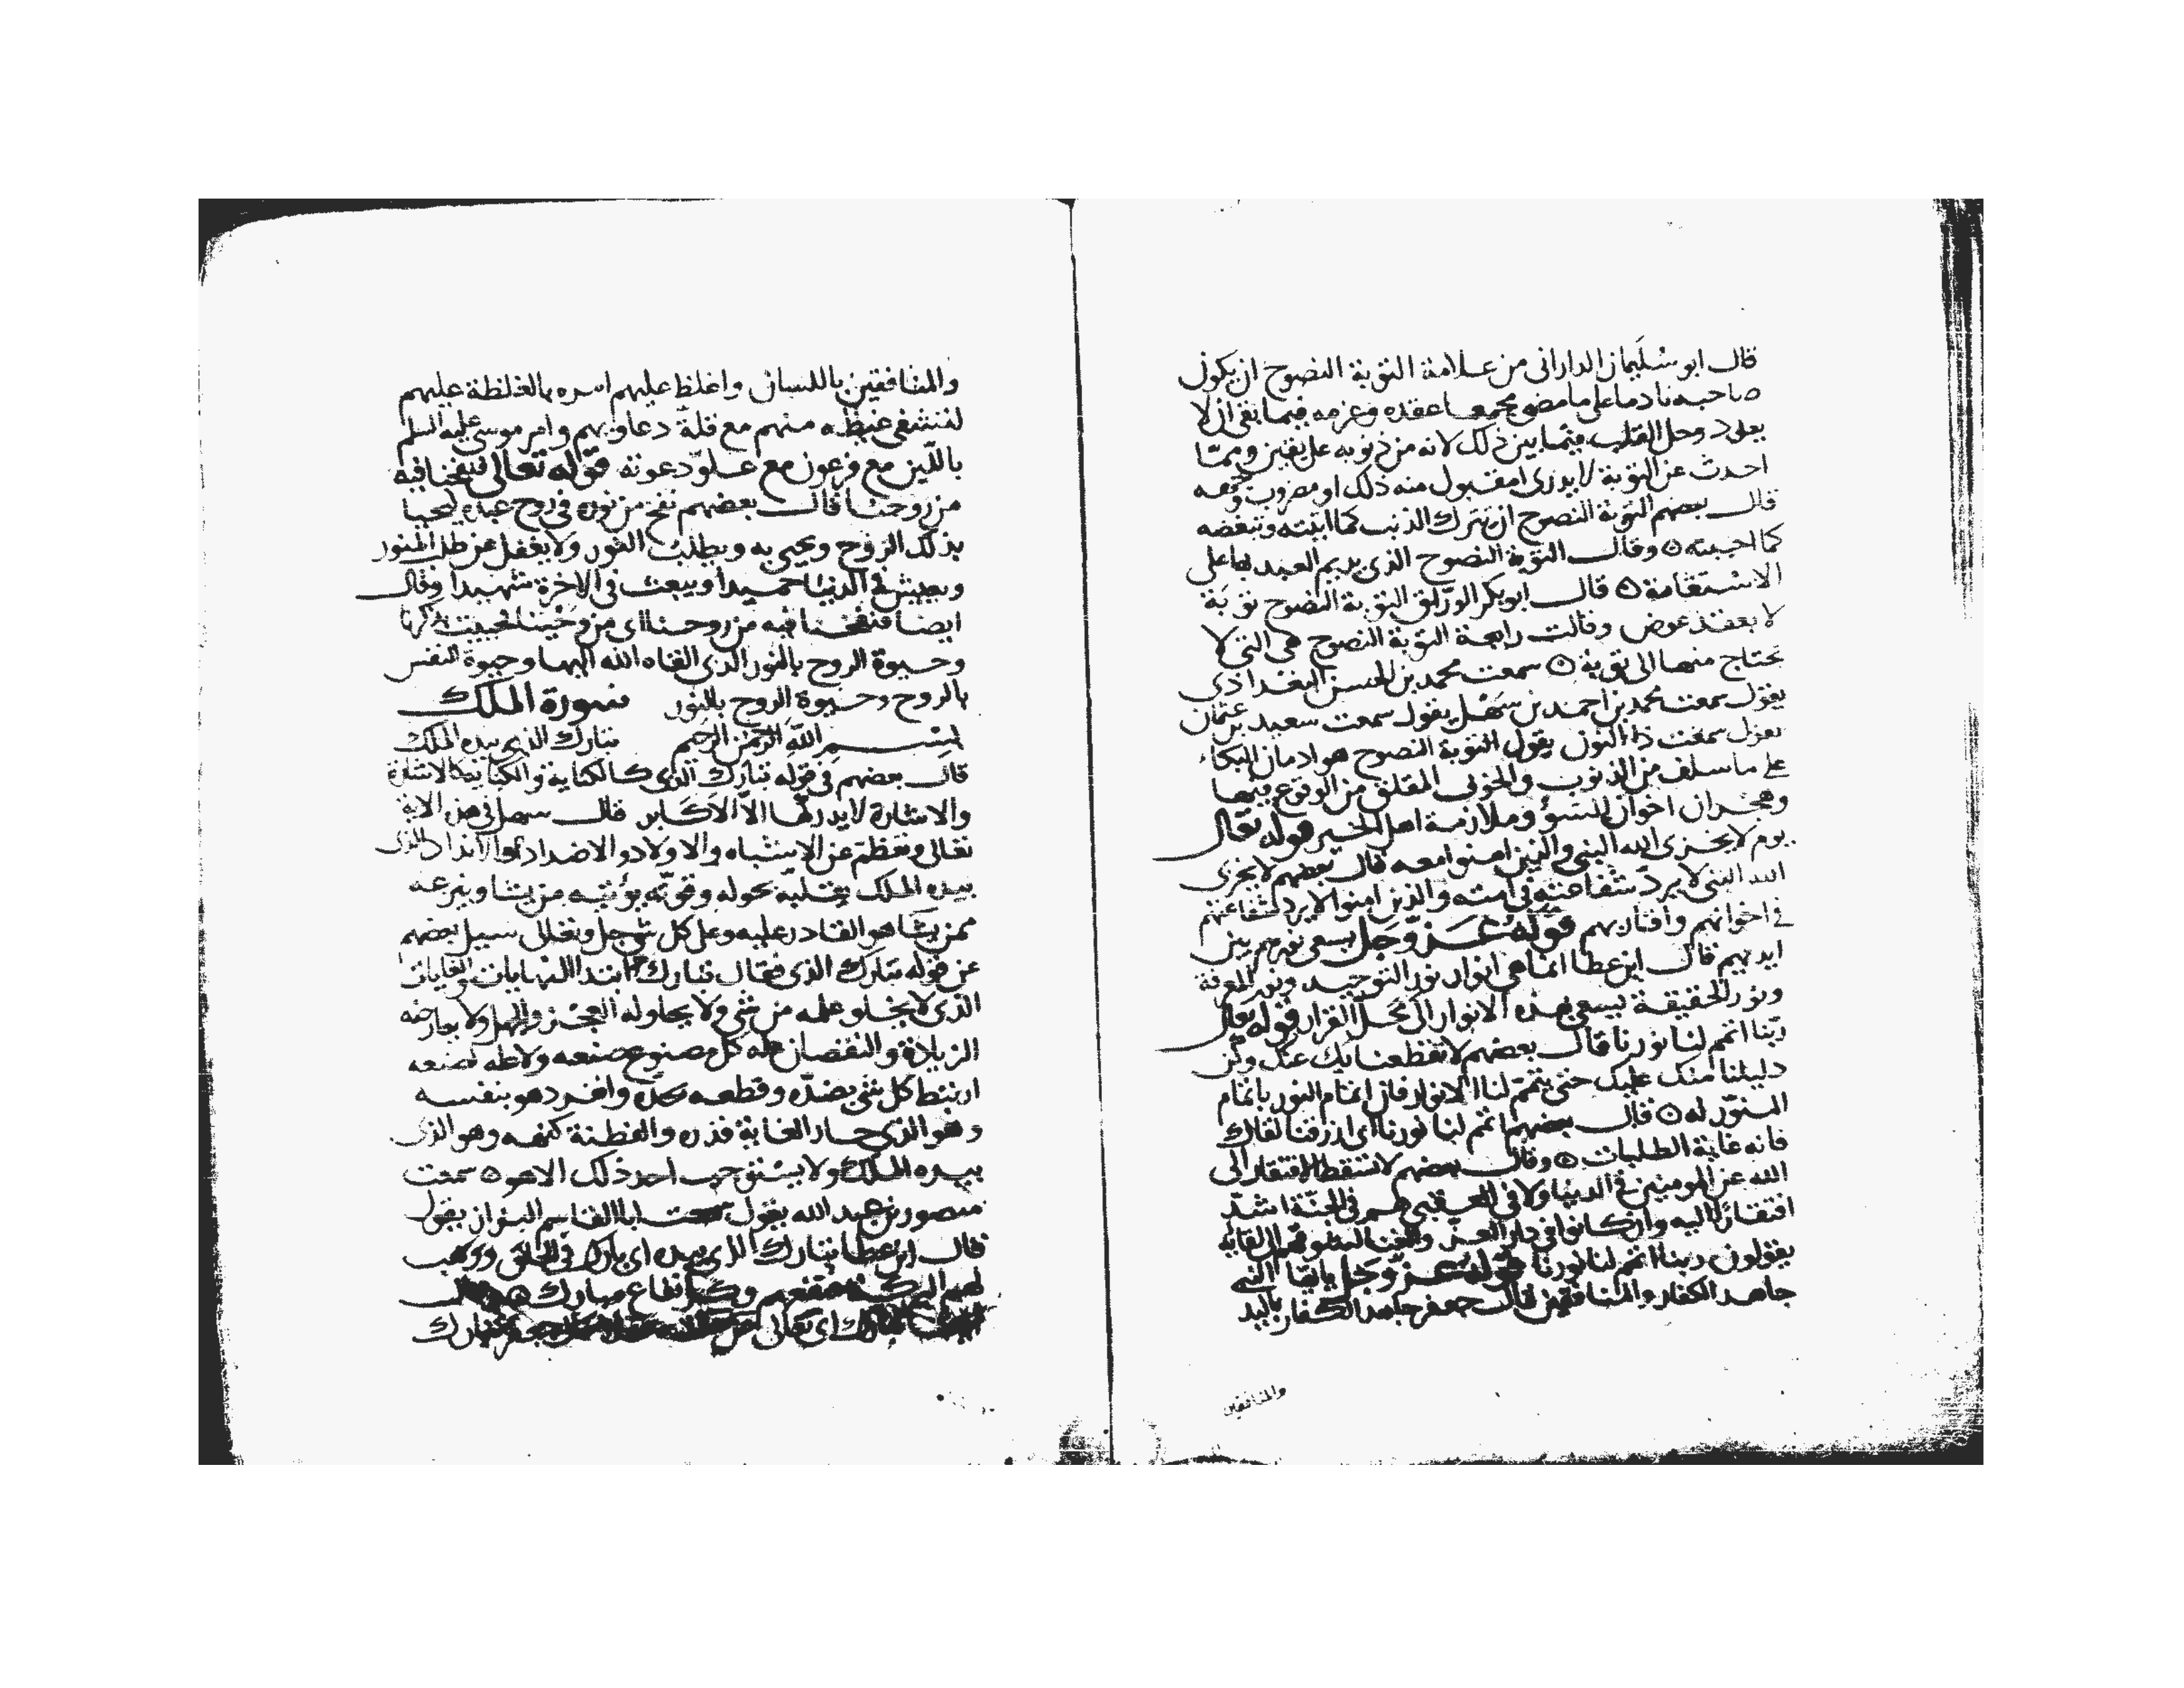 قال ابو سليمان الدارانى من علامة التوبة النصوح ان يكون
صاحبه نادما على ما مضى مجمعا عقده وعزمه فيما بقى ان لا
يعاود وجل القلب فيما بين ذلك لانه من ذنوبه على يقين ومما
احدث عن التوبة لا يدرى امقبول منه ذلك او مضروب وجهه
قال بعضهم التوبة النصوح ان تترك الذنب كما اتيته وتبغضه
كما احببته ٥ وقال التوبة النصوح الذى يديم العبد بها على
الاستقامة ٥ قال ابو بكر الوراق التوبة النصوح توبة
لا بعقد عوض وقالت رابعة التوبة النصوح هى التى لا
يحتاج منها الى توبة ٥ سمعت محمد بن الحسن البغداذى
يقول سمعت محمد بن احمد بن سهل يقول سمعت سعيد بن عثمان
يقول سمعت ذا النون يقول التوبة النصوح هو ادمان البكاء
على ما سلف من الذنوب والخوف المقلق من الوقوع فيها
وهجران اخوان السؤ وملازمة اهل الخير قوله تعالى
يوم لا يخزى الله النبى والذين امنوا معه قال بعضهم لا يخزى
الله النبى لا يرد شفاعته فى امته والذين امنوا لا يرد شفاعتهم
فى اخوانهم واقاربهم قوله عز وجل يسعى نورهم بين
ايديهم قال ابن عطا انما هى انوار نور التوحيد ونور المعرفة
ونور الحقيقة يسعى بهذه الانوار الى محل القرار قوله تعالى
ربنا اتمم لنا نورنا قال بعضهم لا تقطعنا بك عنك وكن
دليلنا منك عليك حتى يتم لنا الانوار فان اتمام النور باتمام
المنور له ٥ قال بعضهم اتمم لنا نورنا اى ارزقنا لقاك
فانه غاية الطلبات ٥ وقال بعضهم لا تسقط الافتقار الى
الله عن المومنين فى الدنيا ولا فى العقبى هم فى الجنة اشد
افتقارا اليه وان كانوا فى دار العز والغنا لشوقهم الى لقائه
يقولون ربنا اتمم لنا نورنا قوله عز وجل يا يها النبى
جاهد الكفار والمنافقين قال جعفر جاهد الكفار باليد
والمنافقين
والمنافقين باللسان واغلظ عليهم امره بالغلظة عليهم
لنتشفى غيظه منهم مع قلة دعاويهم وامر موسى عليه السلم
باللين مع فرعون مع علو دعوته قوله تعالى فنفخنا فيه
من روحنا قال بعضهم نفخ من نوره فى روح عبده ليحيا
بذلك الروح ويحيى به ويطلب النور ولا يغفل عن طلب المنور
ويعيش فى الدنيا حميدا ويبعث فى الاخرة شهيدا وقال
ايضا فنفخنا فيه من روحنا اى من
وحيوة الروح بالنور الذى القاه الله اليها وحيوة النفس
بالروح وحيوة الروح بالنور سورة الملك
بسم الله الرحمن الرحيم تبارك الذى بيده الملك
قال بعضهم فى قوله تبارك الذى كالكناية والكناية كالاشارة
والاشارة لا يدركها الا الاكابر قال سهل فى هذه الاية
تعالى وتعظم عن الاشباه والاولاد والاضداد والانداد الذى
بيده الملك يقلبه بحوله وقوته يوتيه من يشا وينزعه
ممن يشا هو القادر عليه وعلى كل شى جل وتعالى سيل بعضهم
عن قوله تبارك الذى فقال تبارك ابتدا النهايات والغايات
الذى لا يخلو علمه من شى ولا يحاوله العجز والجهل ولا يعارضه
الزيادة والنقصان علة كل مصنوع صنعه ولا علة لصنعه
ارتبط كل شى بضده وقطعه بحده وانفرد هو بنفسه
وهو الذى حار العامة قدره والفطنة كنهه وهو الذى
بيده الملك ولا يستوجب احد ذلك الا هو ٥ سمعت
منصور بن عبد الله يقول سمعت ابا القاسم البزاز يقول
قال ابن عطا تبارك الذى بيده اى بارك فى الخلق ووهب
لهم البركة وكل مبارك
تبارك اى تعالى تبارك